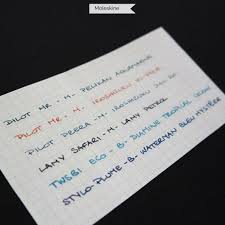 Moleskine
PILOT MR - M - PELIKAN AQUAMARINE
PILOT MR - M - IROSHIZUKU
PILOT PRERA - M - IROSHIZUKU
LAMY SAFARI - M - LAMY PETROL
TWSBI ECO - B - DIAMINE TROPICAL GREEN
STYLO-PLUME - B - WATERMAN BLEU MYSTÈRE